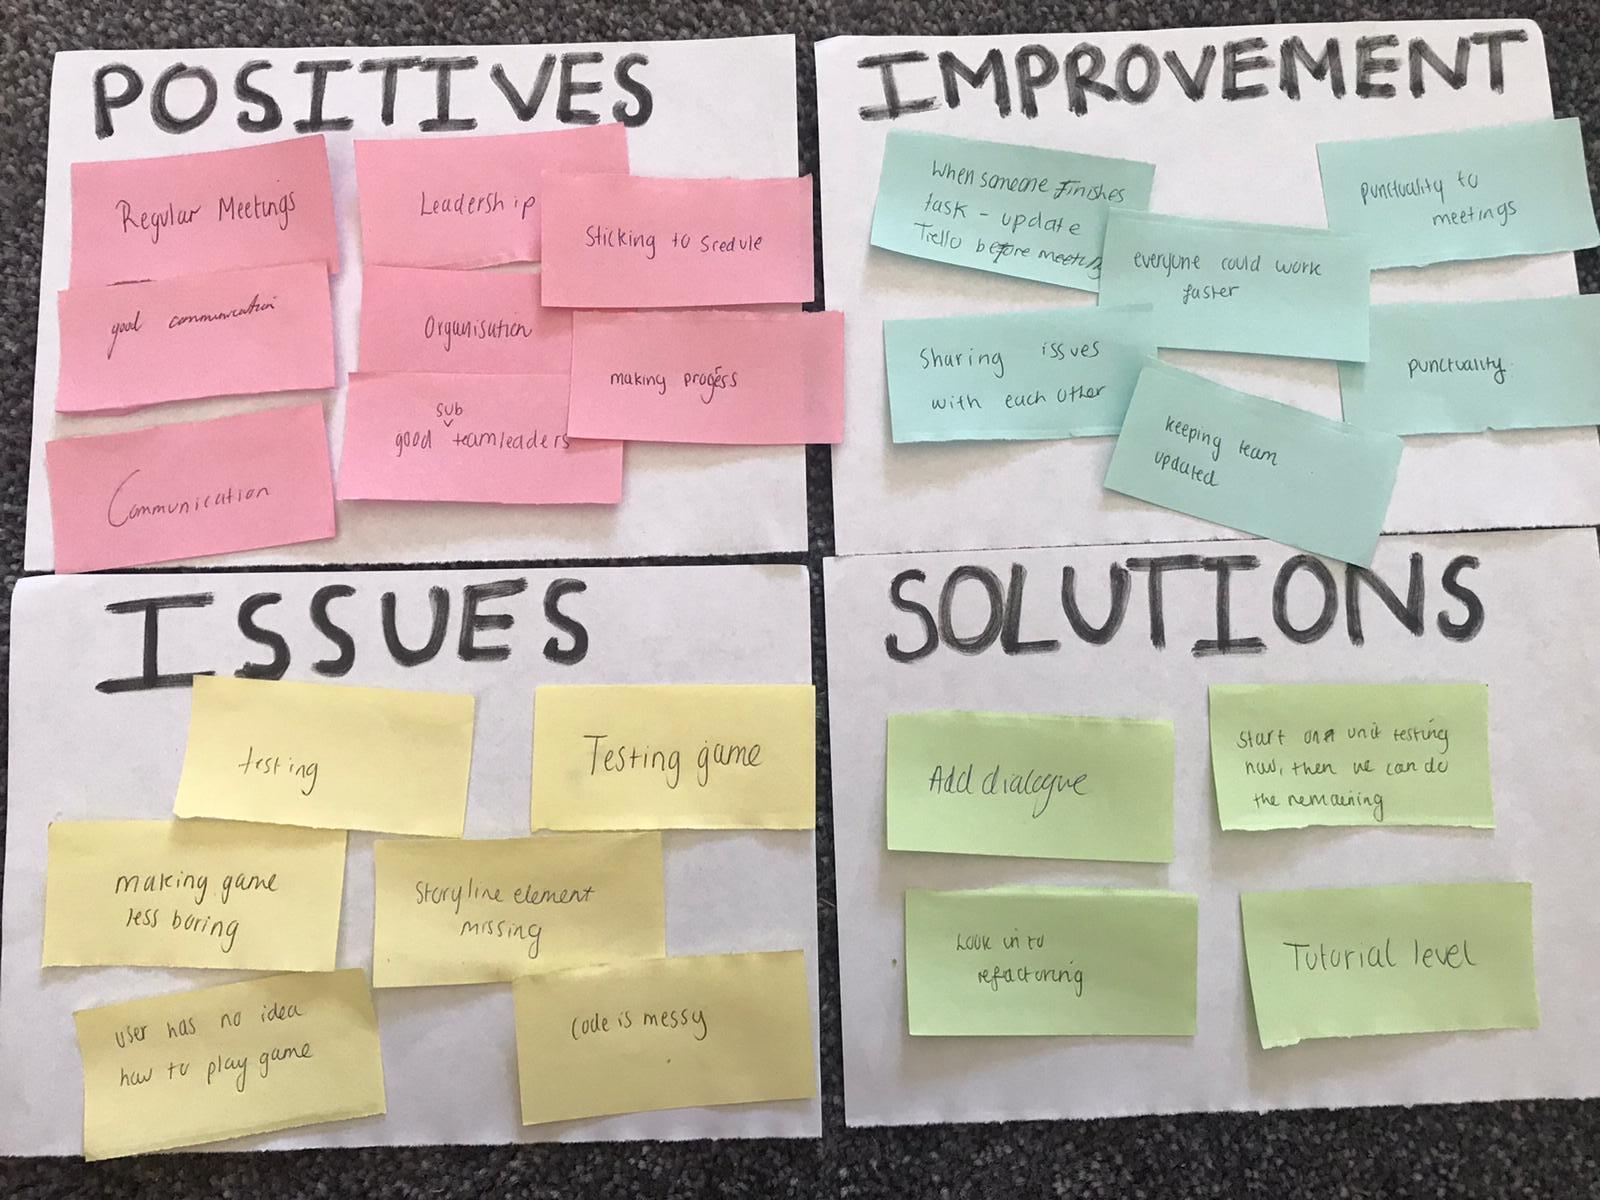 POSITIVES
Regular Meetings
Leadership
Sticking to Scedule
good communication
Organisation
making progess
Communication
sub
good teamleaders
IMPROVEMENT
When someone Finishes
task - update
Trello before meeting
punctuality to
meetings
everyone could work
faster
Sharing issues
with each other
punctuality
keeping team
updated
ISSUES
testing
Testing game
making game
less boring
Storyline element
missing
user has no idea
how to play game
Code is messy
SOLUTIONS
Add dialogue
Start unit testing
now, then we can do
the remaining
Look in to
refactoring
Tutorial level